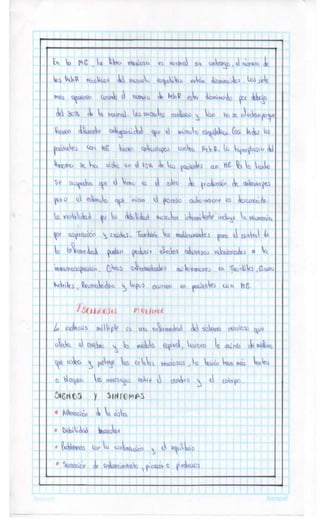 En la MG, la fibra nerviosa es normal sin embargo, el número de
los AchR reactivos del musculo esquelético están disminuidos. Los sínto
mas aparecen cuando el número de AchR esta disminuido por debajo
del 30% de lo normal. Los musculos cardiaco y liso no se afectan porque
tienen diferente antigenicidad que el músculo esquelético. Casi todos los
pacientes con MG tienen anticuerpos contra AchR. La hiperplasia del
timo se ha visto en el 75% de los pacientes con MG. Por lo tanto
se sospecha que el timo es el sitio de producción de anticuerpos
pero el estimulo que inicia el proceso autoinmune es desconocido.
La morbilidad por la debilidad muscular intermitente incluye la neumonia
por aspiración y caidas. También los medicamentos para el control de
la enfermedad pueden producir efectos adversos relacionados a la
inmunosupresión. Otras enfermedades autoinmunes como Tiroiditis,
Artritis Reumatoidea y lupus ocurren en pacientes con MG.
ESCLEROSIS MULTIPLE
La esclerosis múltiple es una enfermedad del sistema nervioso que
afecta al cerebro y la médula espinal, lesiona la vaina de mielina
que rodea y protege las células nerviosas, la lesión hace más lentos
o bloquea los mensajes entre el cerebro y el cuerpo.
SIGNOS Y SINTOMAS
• Alteración de la vista
• Debilidad muscular
• Problemas con la coordinación y el equilibrio
• Sensación de entumecimiento, picazón o pinchazos